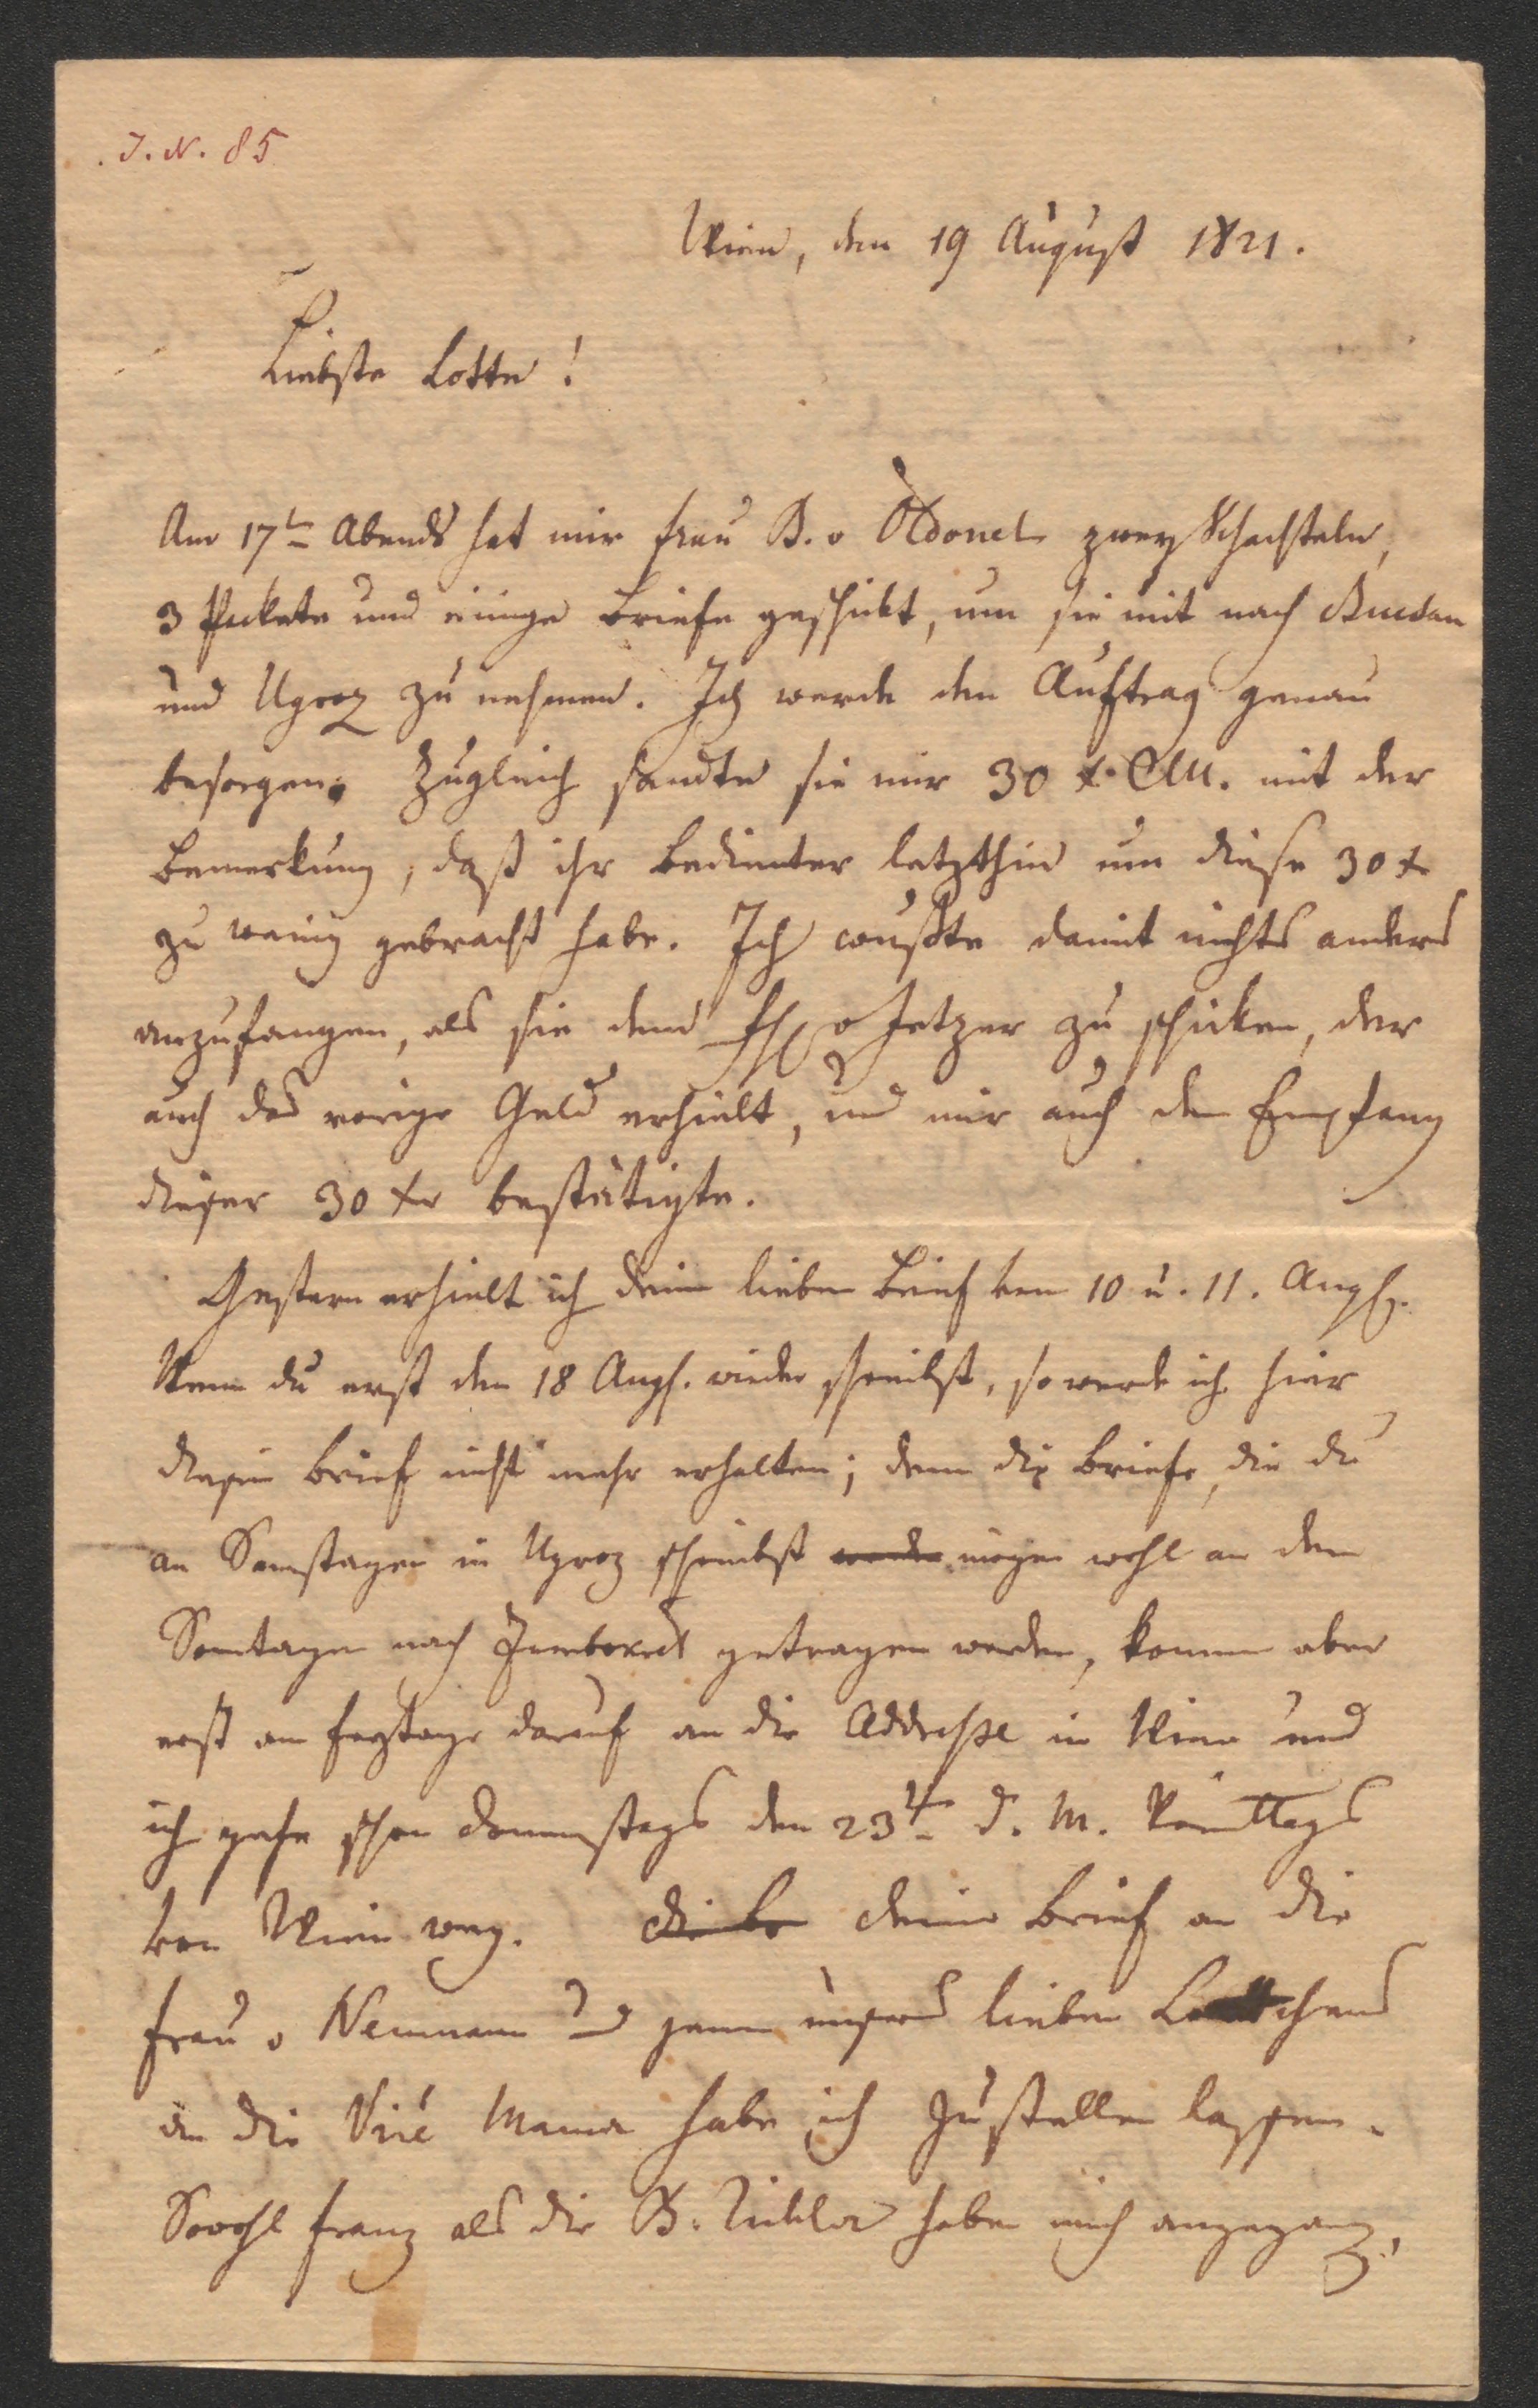 J. N. 85
Wien, den 19 August 1821.
Liebste Lotte!
Am 17t Abends hat mir Frau B. v Odonel zwey Schachteln,
3 Packete und einige Briefe geschickt, um sie mit nach
und Ugroz zu nehmen. Ich werde den Auftrag genau
besorgen. Zugleich sandte sie mir 30 x CM. mit der
Bemerkung, daß ihr Bedienter letzthin um diese 30 x
zu wenig gebracht habe. Ich wußte damit nichts anders
anzufangen, als sie dem H v Jetzer zu schicken, der
auch das vorige Geld erhielt, und mir auch den Empfang
dieser 30 xr bestätigte.
Gestern erhielt ich dein lieben Brief vom 10 u. 11. Augst.
Wenn du erst den 18 Augst. wieder schreibst, so werde ich hier
diesen Brief nicht mehr erhalten; denn die Briefe, die du
an Samstagen in Ugroz schreibst werden mögen wohl an dem
Sontagen nach getragen werden, komen aber
erst am Freytage darauf an die Addresse in Wien und
ich gehe schon Donnerstags den 23t d. M. Vormittags
von Wien weg. die Br deine Brief an die
Frau v Neumann und jenen unsers lieben Lottchens
an die Mama habe ich zustellen lassen.
Sowohl Franz als die B. haben mich angegangen,